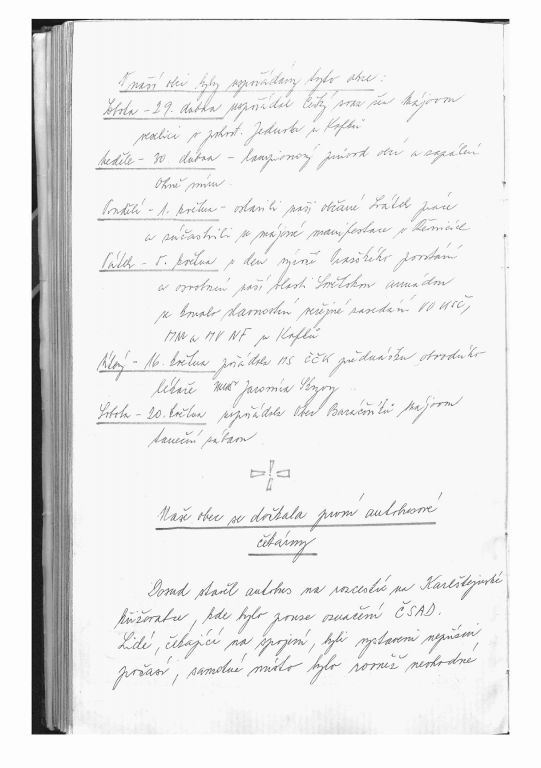 V naší obci byly uspořádány tyto akce:
Sobota - 29. dubna uspořádal Český svaz žen Májovou
veselici v pohost. Jednota u Kaflů
Neděle - 30. dubna - lampionový průvod obcí a zapálení
Ohně míru.
Pondělí - 1. května - oslavili naši občané Svátek práce
a zúčastnili se májové manifestace v Řevnicích
Pátek - 5. května v den výročí Pražského povstání
a osvobození naší vlasti Sovětskou armádou
se konalo slavnostní veřejné zasedání VO KSČ,
MNV a MV NF u Kaflů
Úterý - 16. května pořádala MS ČČK přednášku obvodního
lékaře MUDr Jaromíra
Sobota - 20. května uspořádala Obec Baráčníků Májovou
taneční zábavu.
Naše obec se dočkala první autobusové
čekárny
Dosud stavěl autobus na rozcestí na Karlštejnské
křižovatce, kde bylo pouze označení ČSAD.
Lidé, čekající na spojení, byli vystaveni nepřízni
počasí, samotné místo bylo rovněž nevhodné